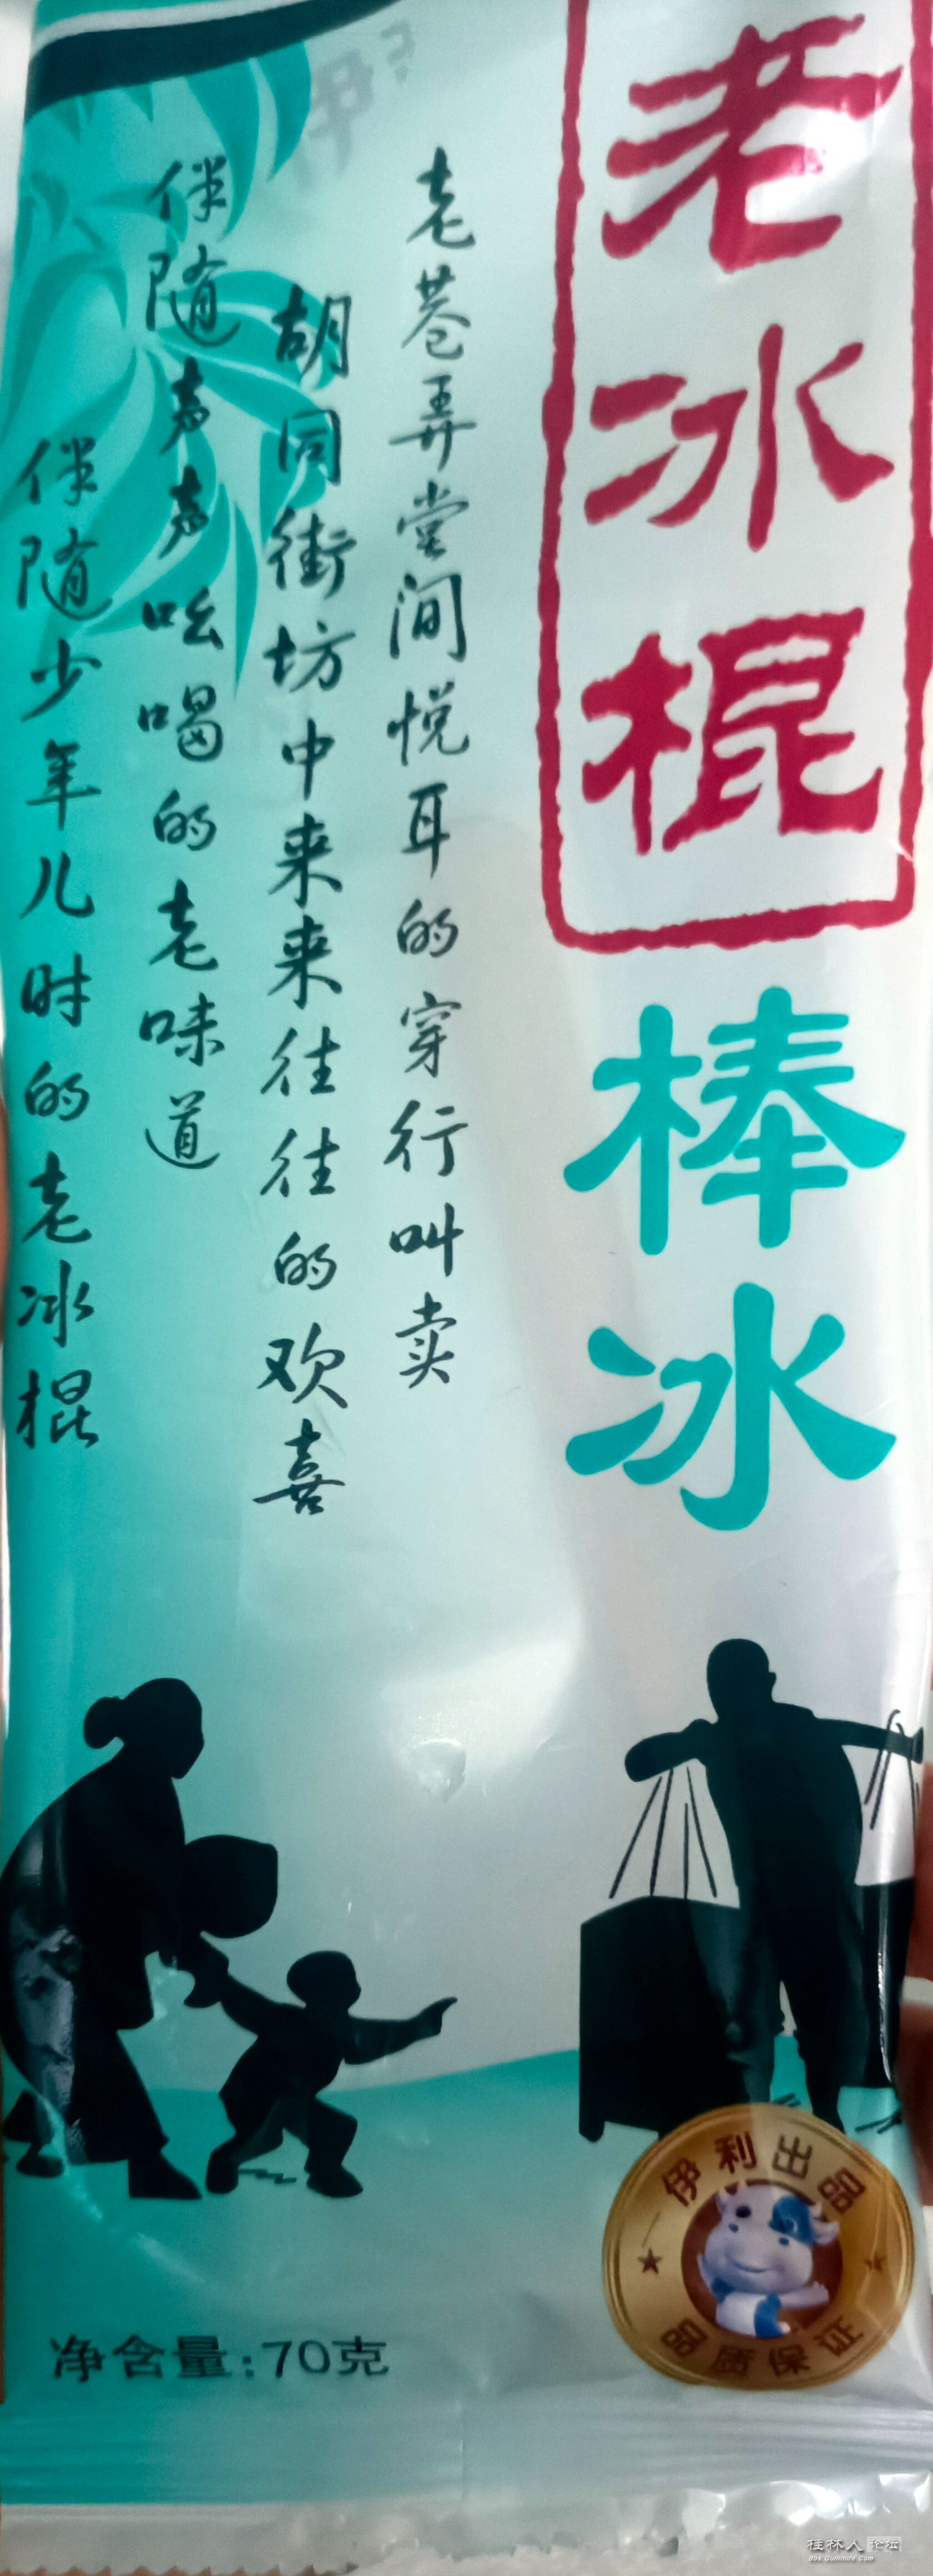 老冰棍
棒冰
老巷弄堂间悦耳的穿行叫卖
胡同街坊中来来往往的欢喜
伴随声声吆喝的老味道
伴随少年儿时的老冰棍
伊利出品
品质保证
净含量:70克
桂林人论坛